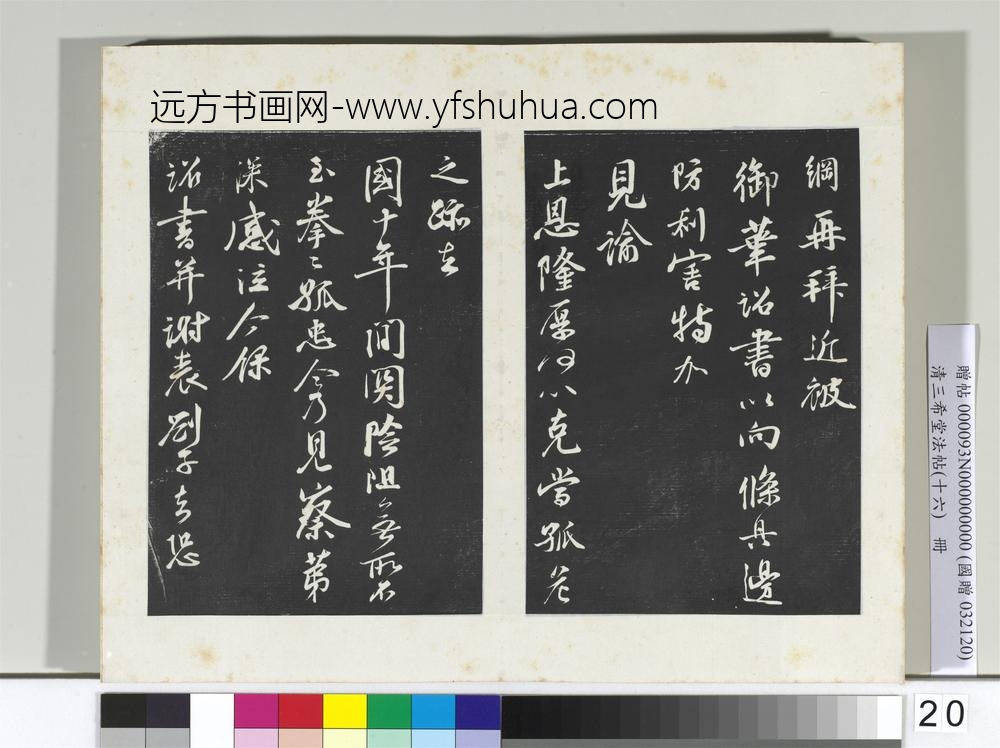 远方书画网-www.yfshuhua.com
綱再拜近被
御筆詔書以向條具邊
防利害特加
見諭
上恩隆厚何以克當孤危
之跡去
國十年間関險阻無所不
至拳〻孤忠今乃見察第
深感泣今保
詔書并謝表劉子去恐
贈帖 000093N000000000 (國贈 032120)
清三希堂法帖(十六) 冊
20